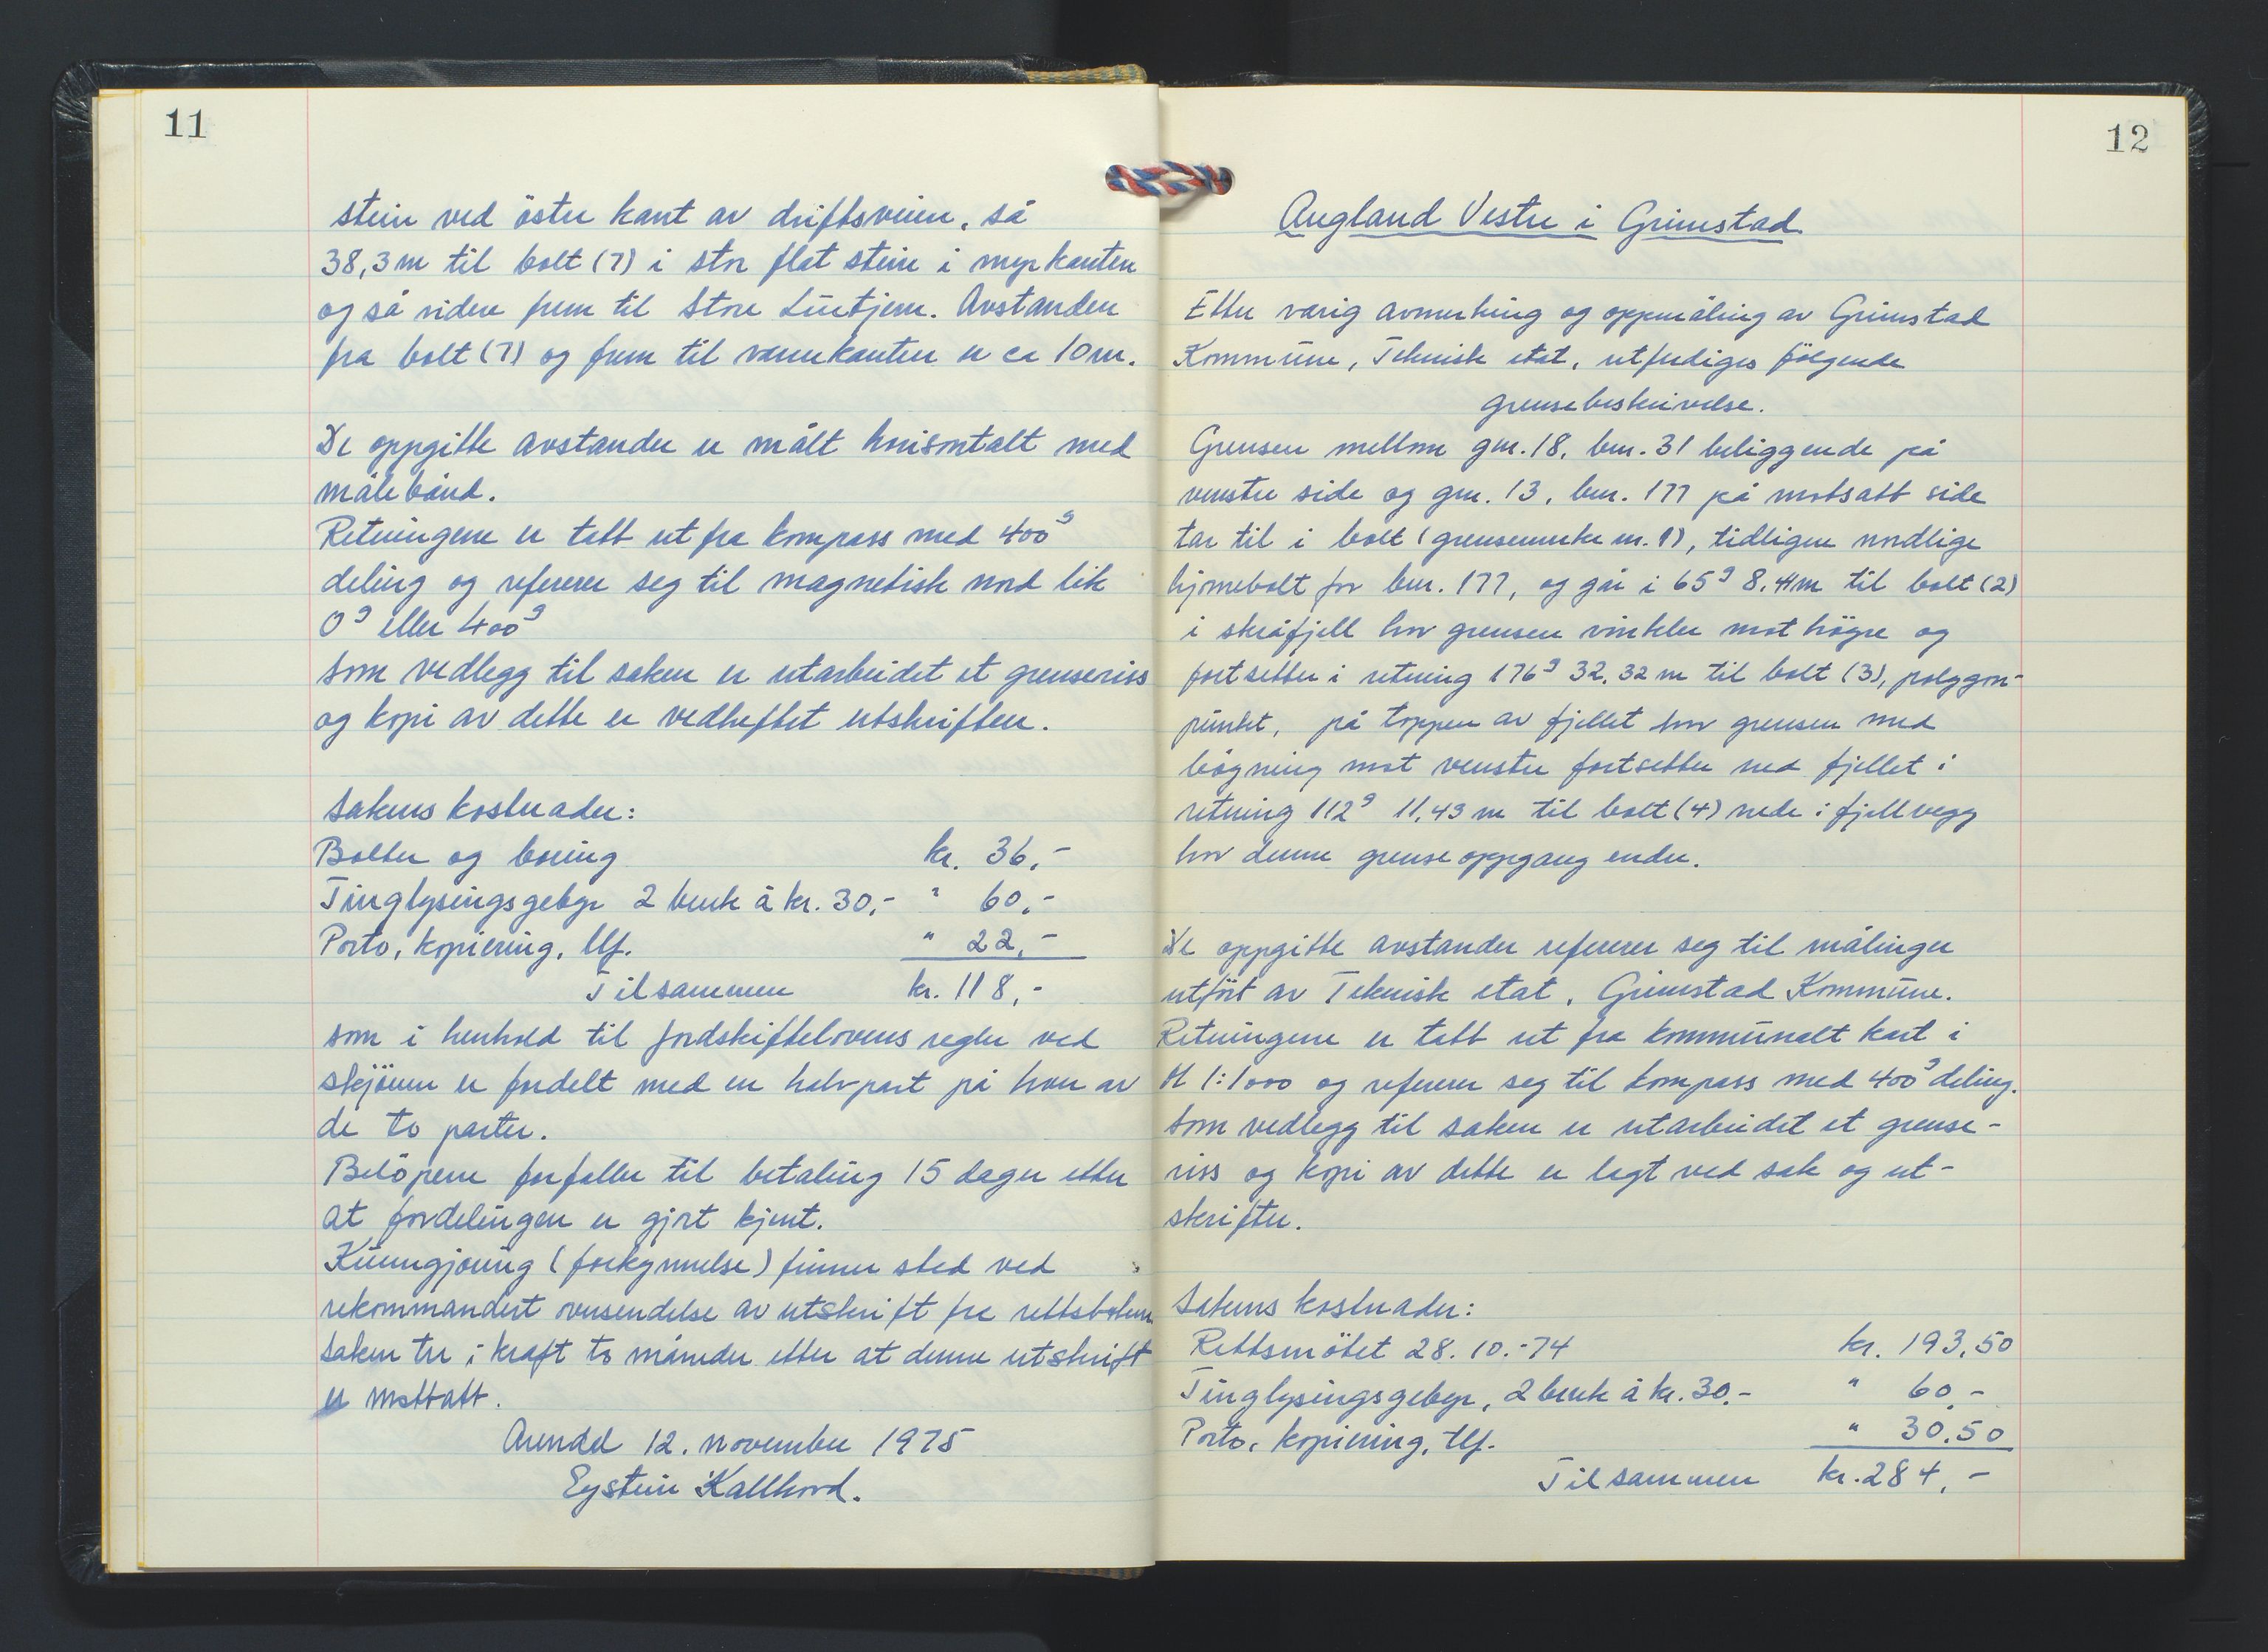 11
stein ved öster kant av driftsveien, så
38,3 m til bolt (7) i stor flat stein i myrkanten
og så videre frem til Store Lintjern. Avstanden
fra bolt (7) og frem til vannkanten er ca 10 m.
De oppgitte avstander er målt horisontalt med
målebånd.
Retningene er tatt ut fra kompass med 400g
deling og referere seg til magnetisk nord lik
0g eller 400g
Som vedlegg til saken er utarbeidet et grenseriss
og kopi av dette er vedheftet utskriften.
Sakens kostnader:
Bolter og boring kr. 36,-
Tinglysingsgebyr 2 bruk à kr. 30,- " 60,-
Porto, kopiering, tlf. " 22,-
Tilsammen kr. 118,-
som i henhold til jordskiftelovens regler ved
skjönn er fordelt med en halvpart på hver av
de to parter.
Belöpene forfaller til betaling 15 dager etter
at fordelingen er gjort kjent.
Kunngjöring (forkynnelse) finner sted ved
rekommandert oversendelse av utskrift fra rettsboken.
Saken trer i kraft to måneder etter at denne utskrift
er mottatt.
Arendal 12. november 1975
Eystein Kallhovd.
12
Angland Vestre i Grimstad.
Etter varig avmerking og oppmåling av Grimstad
Kommune, Teknisk etat, utferdiges fölgende
grensebeskrivelse.
Grensen mellom gnr. 18, bnr. 31 beliggende på
venstre side og gnr. 13, bnr. 177 på motsatt side
tar til i bolt (grensemerke nr. 1), tidligere nordlige
hjörnebolt for bnr. 177, og går i 65g 8,41m til bolt (2)
i skråfjell hvor grensen vinkler mot högre og
fortsetter i retning 176g 32,32 m til bolt (3), polygon-
punkt, på toppen av fjellet hvor grensen med
bögning mot venstre fortsetter ned fjellet i
retning 112g 11,43 m til bolt (4) nede i fjellvegg
hvor denne grenseoppgang ender.
De oppgitte avstander referere seg til målinger
utfört av Teknisk etat, Grimstad Kommune.
Retningene er tatt ut fra kommunalt kart i
M 1:1000 og referere seg til kompass med 400g deling.
Som vedlegg til saken er utarbeidet et grense-
riss og kopi av dette er lagt ved sak og ut-
skrifter.
Sakens kostnader:
Rettsmötet 28.10.-74 kr. 193,50
Tinglysingsgebyr, 2 bruk à kr. 30.- " 60,-
Porto, kopiering, tlf. " 30,50
Tilsammen kr. 284,-